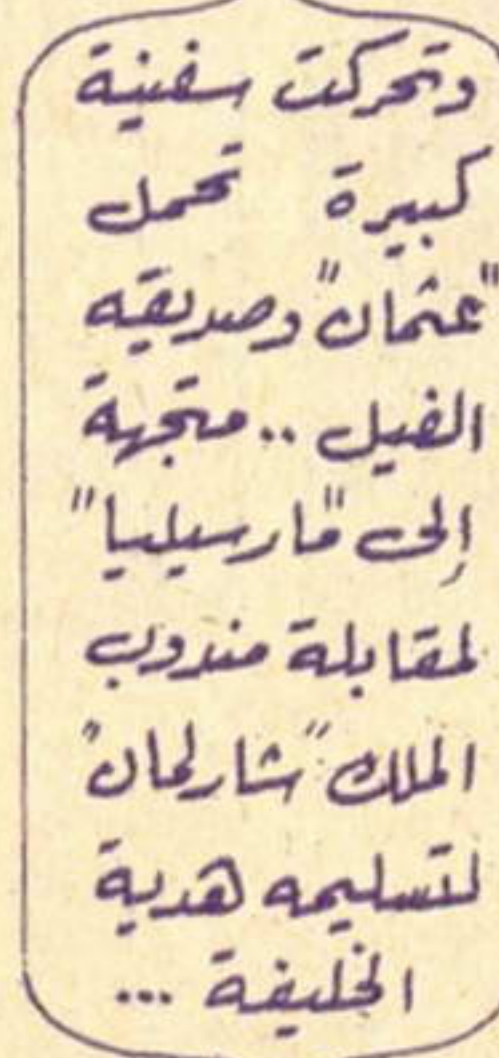 وتحركت سفينة
كبيرة تحمل
"عثمان" وصديقه
الفيل .. متجهة
إلى "مارسيليا"
لمقابلة مندوب
الملك "شارلمان"
لتسليمه هدية
الخليفة ...